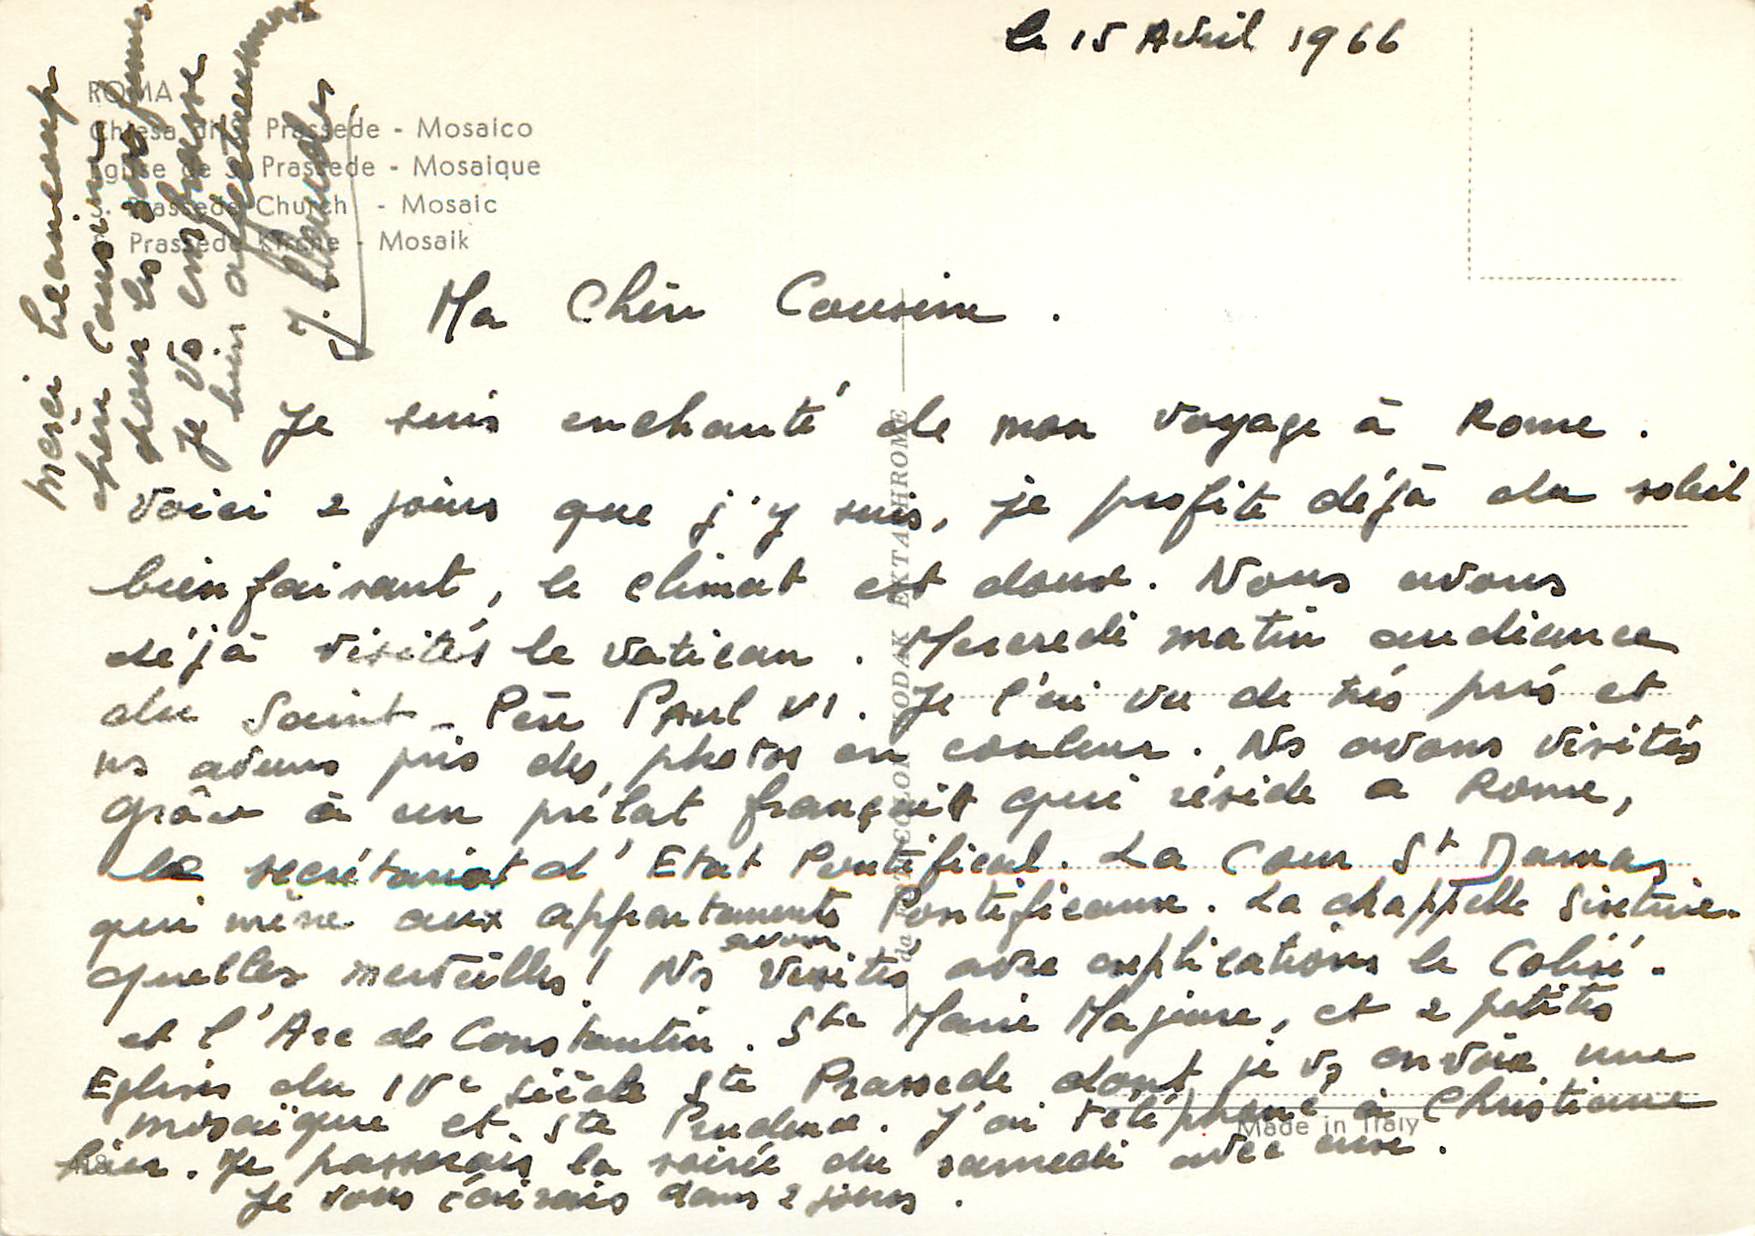 le 15 Avril 1966
ROMA
Chiesa di S. Prassede - Mosaico
Eglise de S. Prassede - Mosaique
S. Prassede Church - Mosaic
S. Prassede Kirche - Mosaik
Ma Chère Cousine.
Je suis enchanté de mon voyage à Rome.
Voici 2 jours que j'y suis, je profite déjà du soleil
bienfaisant, le climat est doux. Nous avons
déjà visités le Vatican. Mercredi matin audience
du Saint-Père Paul VI. Je l'ai vu de très près et
ns avons pris des photos en couleur. Ns avons visités
grâce à un prélat français qui réside a Rome,
le secrétariat d'Etat Pontifical. La Cour St Damas
qui mène aux appartements Pontificaux. La chappelle Sixtine.
quelles merveilles! Ns avons visités avec explications le Colisé.
et l'Arc de Constantin. Ste Marie Majeure, et 2 petites
Eglises du IVe siècle Ste Prassede dont je vs envoie une
mosaïque et Ste Prudence. J'ai téléphoné à Christiane
hier. Je passerais la soirée du samedi avec eux.
Je vous écrirais dans 2 jours.
Merci beaucoup
chère Cousine
pour les
Je vs embrasse
bien affectueusement
J.
Made in Italy
KODAK EXTACHROME